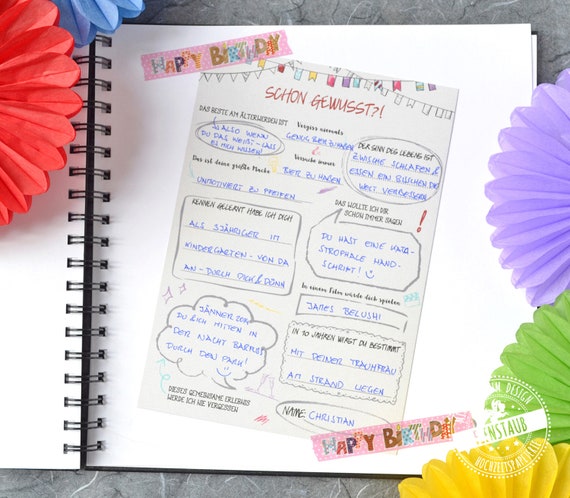 HAPPY BIRTHDAY
SCHON GEWUSST?!
DAS BESTE AM ÄLTERWERDEN IST
ALSO WENN
DU DAS WEIßT - LASS
ES MICH WISSEN!
Vergiss niemals
GENUG BIER ZU HABEN
DER SINN DES LEBENS IST
ZWISCHE SCHLAFEN &
ESSEN EIN BISSCHEN DIE
WELT VERBESSERN
Das ist deine größte Macht
UNMOTIVIERT ZU PFEIFEN
Versuche immer
BIER ZU HABEN
KENNEN GELERNT HABE ICH DICH
ALS 3JÄHRIGER IM
KINDERGARTEN - VON DA
AN - DURCH DICK & DÜNN
DAS WOLLTE ICH DIR
SCHON IMMER SAGEN
DU HAST EINE KATA-
STROPHALE HAND-
SCHRIFT!
In einem Film würde dich spielen
JAMES BELUSHI
JÄNNER
DU & ICH MITTEN IN
DER NACHT BARFUSS
DURCH DEN PARK!
DIESES GEMEINSAME ERLEBNIS
WERDE ICH NIE VERGESSEN
IN 10 JAHREN WIRST DU BESTIMMT
MIT DEINER TRAUMFRAU
AM STRAND LIEGEN
NAME: CHRISTIAN
HAPPY BIRTHDAY
DESIGN
HOCHZEITSPAPETERIE